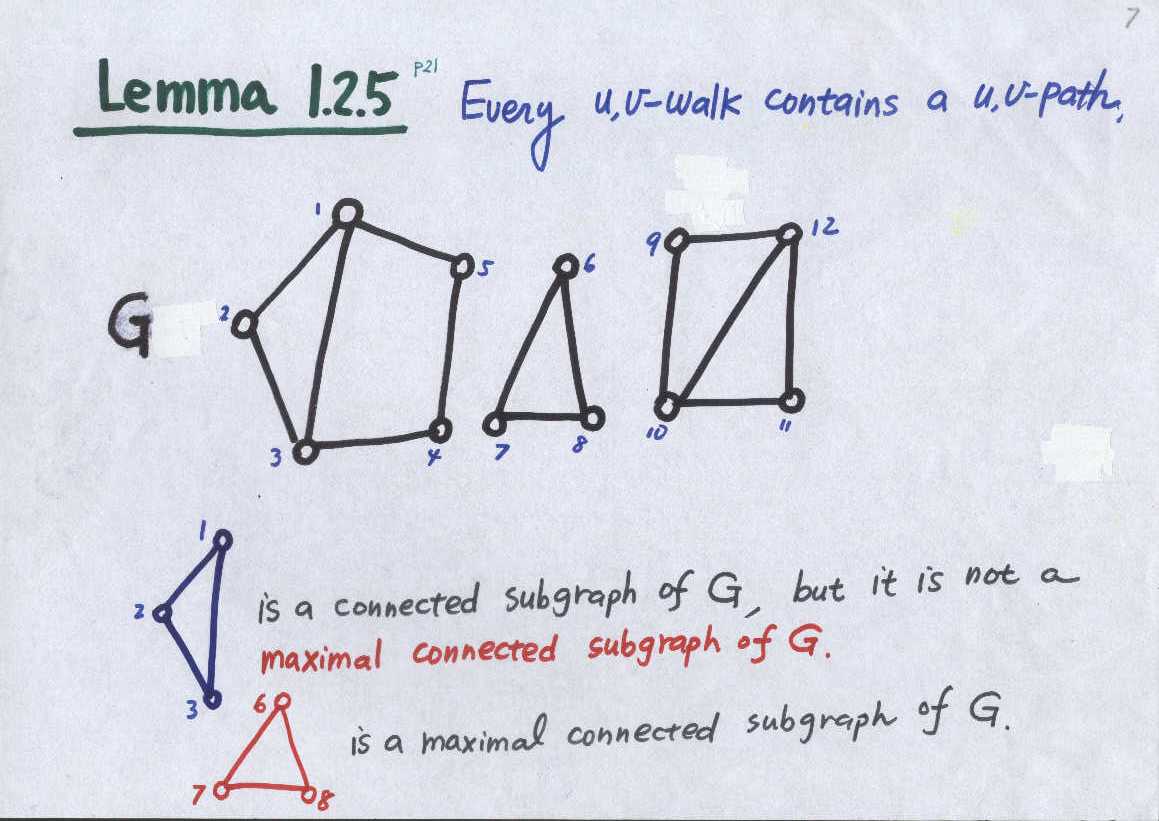 7
Lemma 1.2.5 p21 Every u,v-walk contains a u,v-path.
1
5
6
9
12
G
2
3
4
7
8
10
11
1
2
3
is a connected subgraph of G, but it is not a
maximal connected subgraph of G.
6
7
8
is a maximal connected subgraph of G.